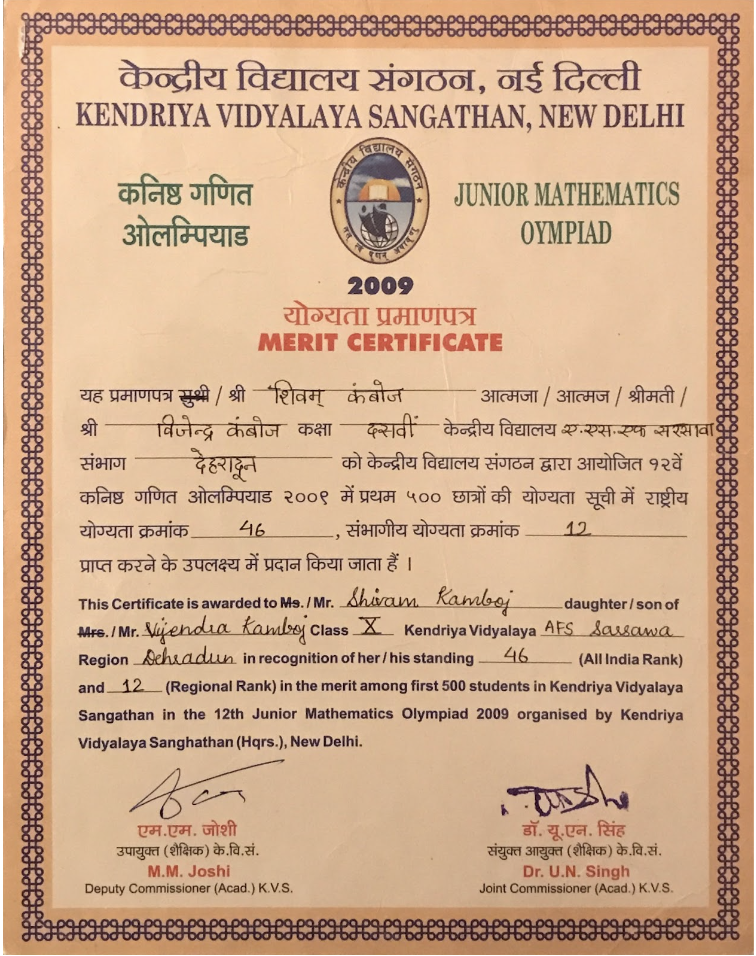 केन्द्रीय विद्यालय संगठन, नई दिल्ली
KENDRIYA VIDYALAYA SANGATHAN, NEW DELHI
कनिष्ठ गणित
ओलम्पियाड
केन्द्रीय विद्यालय संगठन
JUNIOR MATHEMATICS
OYMPIAD
2009
योग्यता प्रमाणपत्र
MERIT CERTIFICATE
यह प्रमाणपत्र सुश्री / श्री शिवम् कंबोज आत्मजा / आत्मज / श्रीमती /
श्री विजेन्द्र कंबोज कक्षा दसवीं केन्द्रीय विद्यालय ए.एस.एफ सरसावा
संभाग देहरादून को केन्द्रीय विद्यालय संगठन द्वारा आयोजित १२वें
कनिष्ठ गणित ओलम्पियाड २००९ में प्रथम ५०० छात्रों की योग्यता सूची में राष्ट्रीय
योग्यता क्रमांक 46 , संभागीय योग्यता क्रमांक 12
प्राप्त करने के उपलक्ष्य में प्रदान किया जाता हैं ।
This Certificate is awarded to Ms. / Mr. Shivam Kamboj daughter / son of
Mrs. / Mr. Vijendra Kamboj Class X Kendriya Vidyalaya AFS Sarsawa
Region Dehradun in recognition of her / his standing 46 (All India Rank)
and 12 (Regional Rank) in the merit among first 500 students in Kendriya Vidyalaya
Sangathan in the 12th Junior Mathematics Olympiad 2009 organised by Kendriya
Vidyalaya Sanghathan (Hqrs.), New Delhi.
एम.एम. जोशी
उपायुक्त (शैक्षिक) के.वि.सं.
M.M. Joshi
Deputy Commissioner (Acad.) K.V.S.
डॉ. यू.एन. सिंह
संयुक्त आयुक्त (शैक्षिक) के.वि.सं.
Dr. U.N. Singh
Joint Commissioner (Acad.) K.V.S.